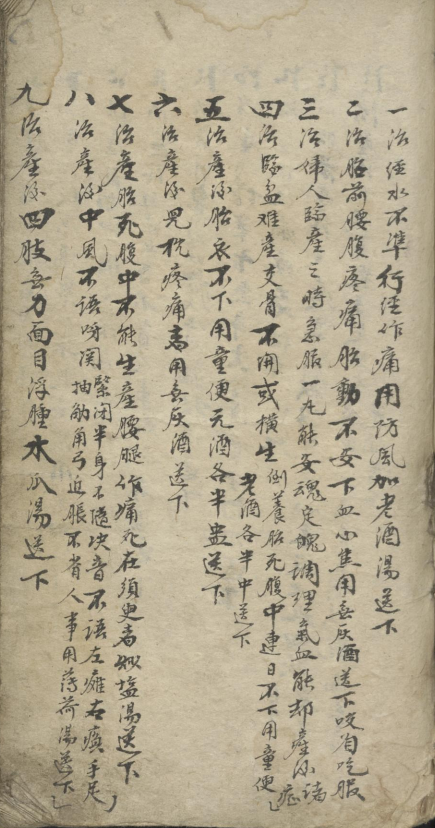 一治经水不準行经作痛用防風加老酒湯送下
二治胎前腰腹疼痛胎動不安下血心焦用無灰酒送下咬自吃服
三治婦人臨產之時急服一丸能安魂定魄調理氣血能却產後諸症
四治臨盆难產交骨不開或橫生倒養胎死腹中連日不下用童便老酒各半中送下
五治產後胎衣不下用童便元酒各半盅送下
六治產後兒枕疼痛者用無灰酒送下
七治產胎死腹中不能生產腰腿作痛死在須臾者炒塩湯送下
八治產後中風不語牙関緊闭半身不隨失音不語左癱右瘓手足抽觔角弓近脹不省人事用薄荷湯送下
九治產後四肢無力面目浮腫木瓜湯送下